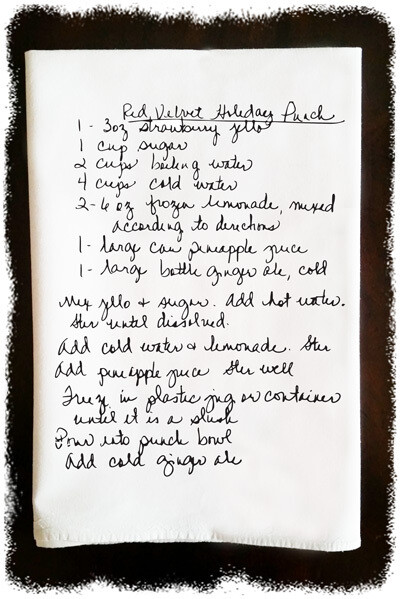 Red Velvet Holiday Punch
1 - 3oz strawberry jello
1 cup sugar
2 cups boiling water
4 cups cold water
2 - 6 oz frozen lemonade, mixed
according to directions
1 - large can pineapple juice
1 - large bottle ginger ale, cold
Mix jello & sugar. Add hot water.
Stir until dissolved.
Add cold water & lemonade. Stir
Add pineapple juice Stir well
Freeze in plastic jug or container
until it is a slush
Pour into punch bowl
Add cold ginger ale